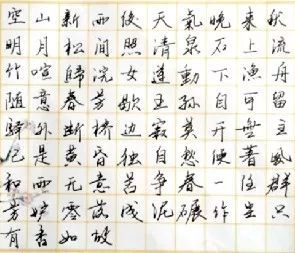 空山新雨後天氣晚来秋
明月松间照清泉石上流
竹喧歸浣女莲動下渔舟
随意春芳歇王孙自可留
驿外断桥边寂寞开無主
已是黄昏独自愁更著風
和雨无意苦争春一任群
芳妒零落成泥碾作尘只
有香如故